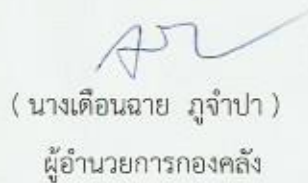 ( นางเดือนฉาย ภูจำปา )
ผู้อำนวยการกองคลัง